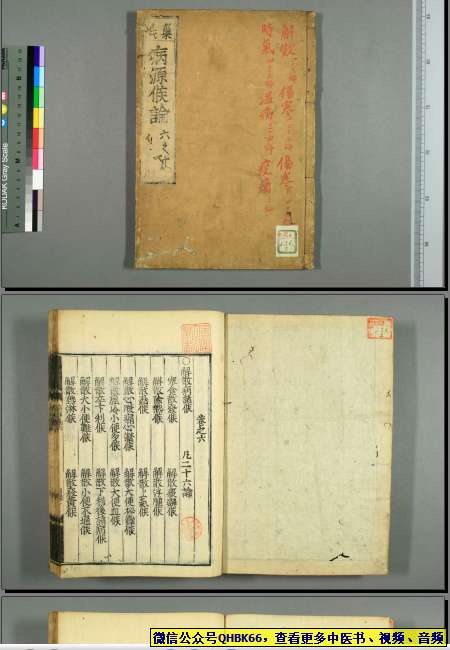 KODAK Gray Scale
巢氏
病源候論
六之十
解散
傷寒
傷寒
時氣
温病
疫癘
卷之六
凡二十六論
○解散病諸候
寒食散發候
解散痰癖候
解散浮腫候
解散熱候
解散上氣候
解散心腹痛心㵣候
解散大便秘難候
解散虛冷小便多候
解散大便血候
解散卒下利候
解散下利後諸病候
解散大小便難候
解散小便不通候
解散熱淋候
解散發黃候
微信公众号QHBK66，查看更多中医书、视频、音频